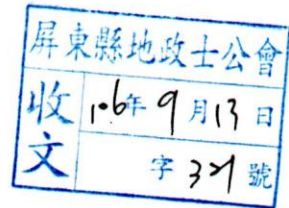 屏東縣地政士公會
收文
106年9月13日
字 321 號